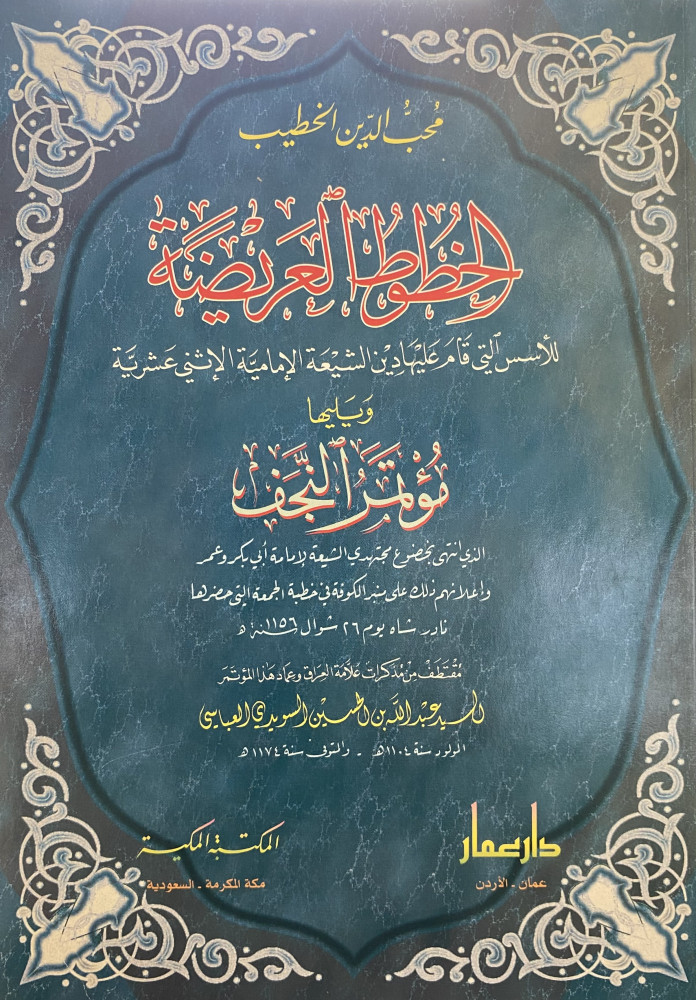 محبُّ الدّين الخطيب
الخُطُوطُ العَريْضَة
للأسس التي قَامَ عَليْهَا دِيْن الشيْعَة الإماميَّة الإثني عَشريَّة
وَيَليها
مُؤتمَرُ النَّجَف
الذي انتهى بخضوع مجتهدي الشيعة لإمامة أبي بكر وعمر
وإعلانهم ذلك على منبر الكوفة في خطبة الجمعة التي حضرها
نادر شاه يوم ٢٦ شوال لسنة ١١٥٦ هـ
مُقتَطَفْ مِنْ مُذكراتْ عَلَّامَة العِراق وعماد هَذا المؤتمَر
السيد عبد الله بن الحسين السويدي العباسي
المولود سنة ١١٠٤ هـ - والمتوفى سنة ١١٧٤ هـ
دار عمار
عمان - الأردن
المكتبة المكية
مكة المكرمة - السعودية